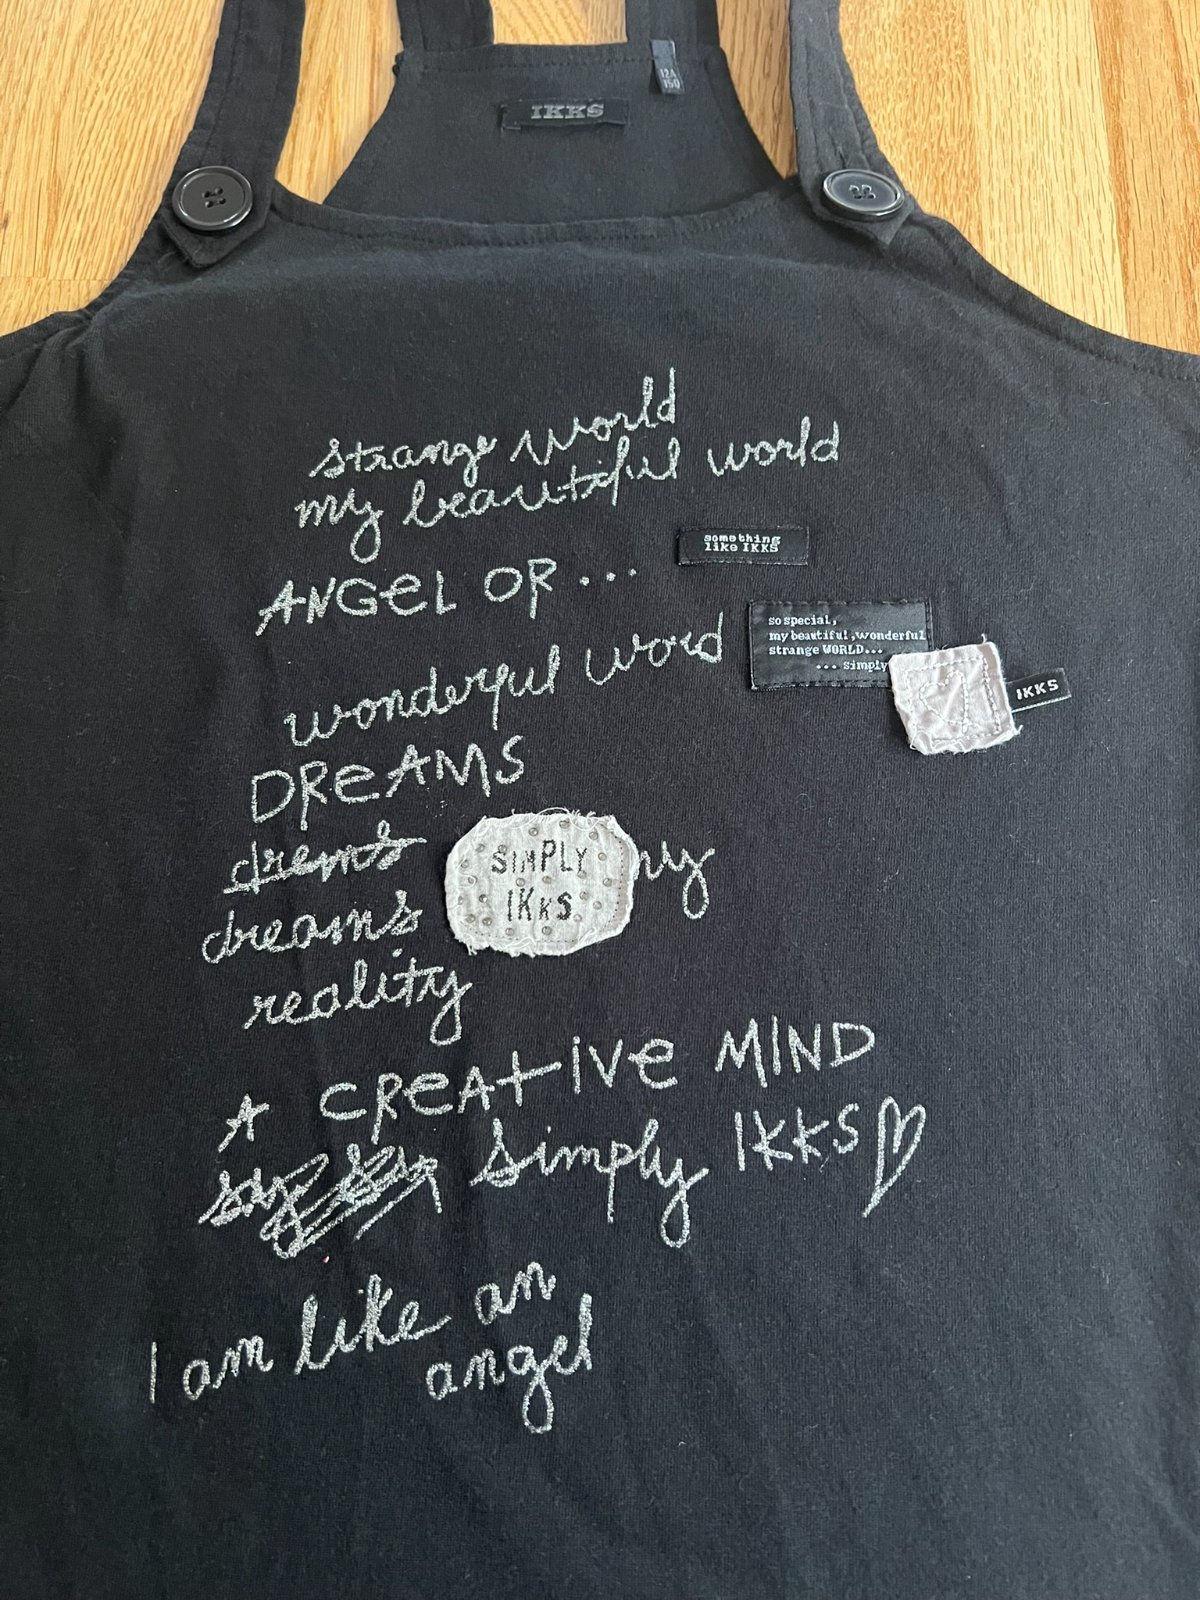 12A
150
IKKS
strange world
my beautiful world
ANGEL OR...
something
like IKKS
wonderful word
so special,
my beautiful, wonderful
strange WORLD...
... simply
IKKS
DREAMS
drems
SIMPLY
IKKS
ry
dreams
reality
A CREATIVE MIND
simply IKKS
I am like an
angel